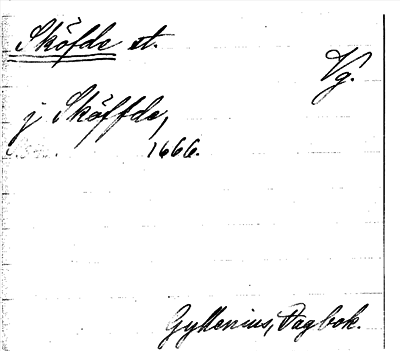 Sköfde st.
Vg.
j Sköffde,
1666.
Gyllenius, Dagbok.